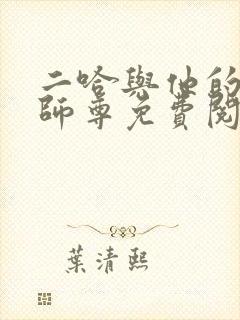 二哈與他的
師尊免費閱
葉清熙